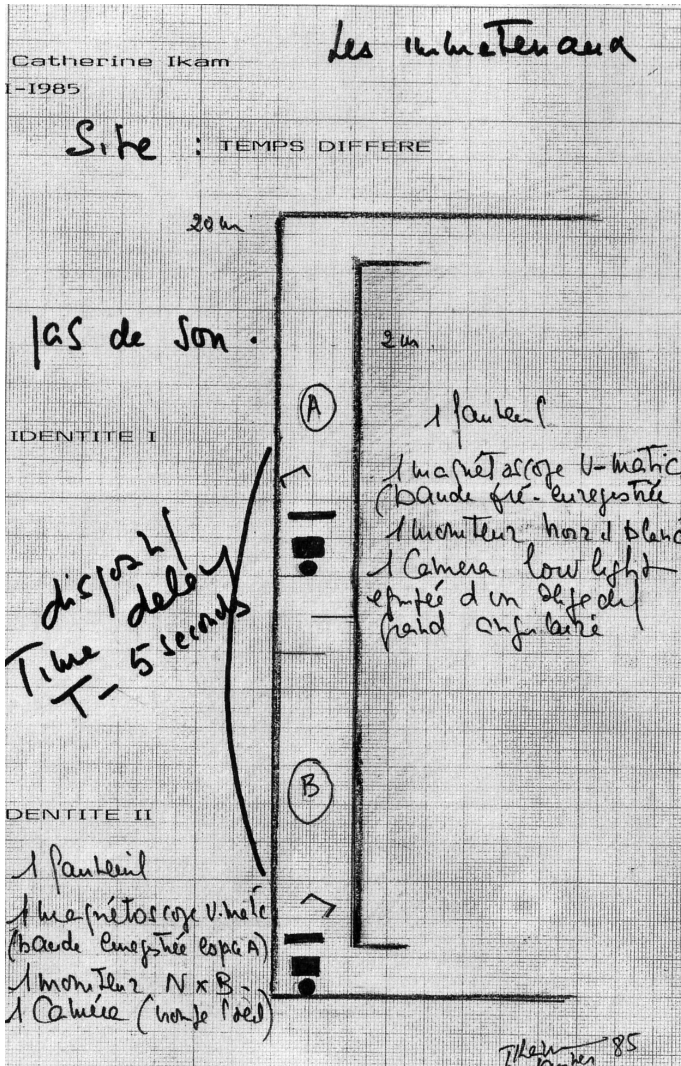 Les immateriaux
Catherine Ikam
I-1985
Site : TEMPS DIFFERE
20 m
pas de son.
2 m
A
1 fauteuil
IDENTITE I
1 magnétoscope U-matic
(bande pré-enregistrée
1 moniteur noir et blanc
1 Camera low light
équipée d'un objectif
grand angulaire
dispositif
Time delay
T - 5 seconds
B
DENTITE II
1 fauteuil
1 magnétoscope U-matic
(bande enregistrée espace A)
1 moniteur N x B -
1 Caméra
Ikam
85